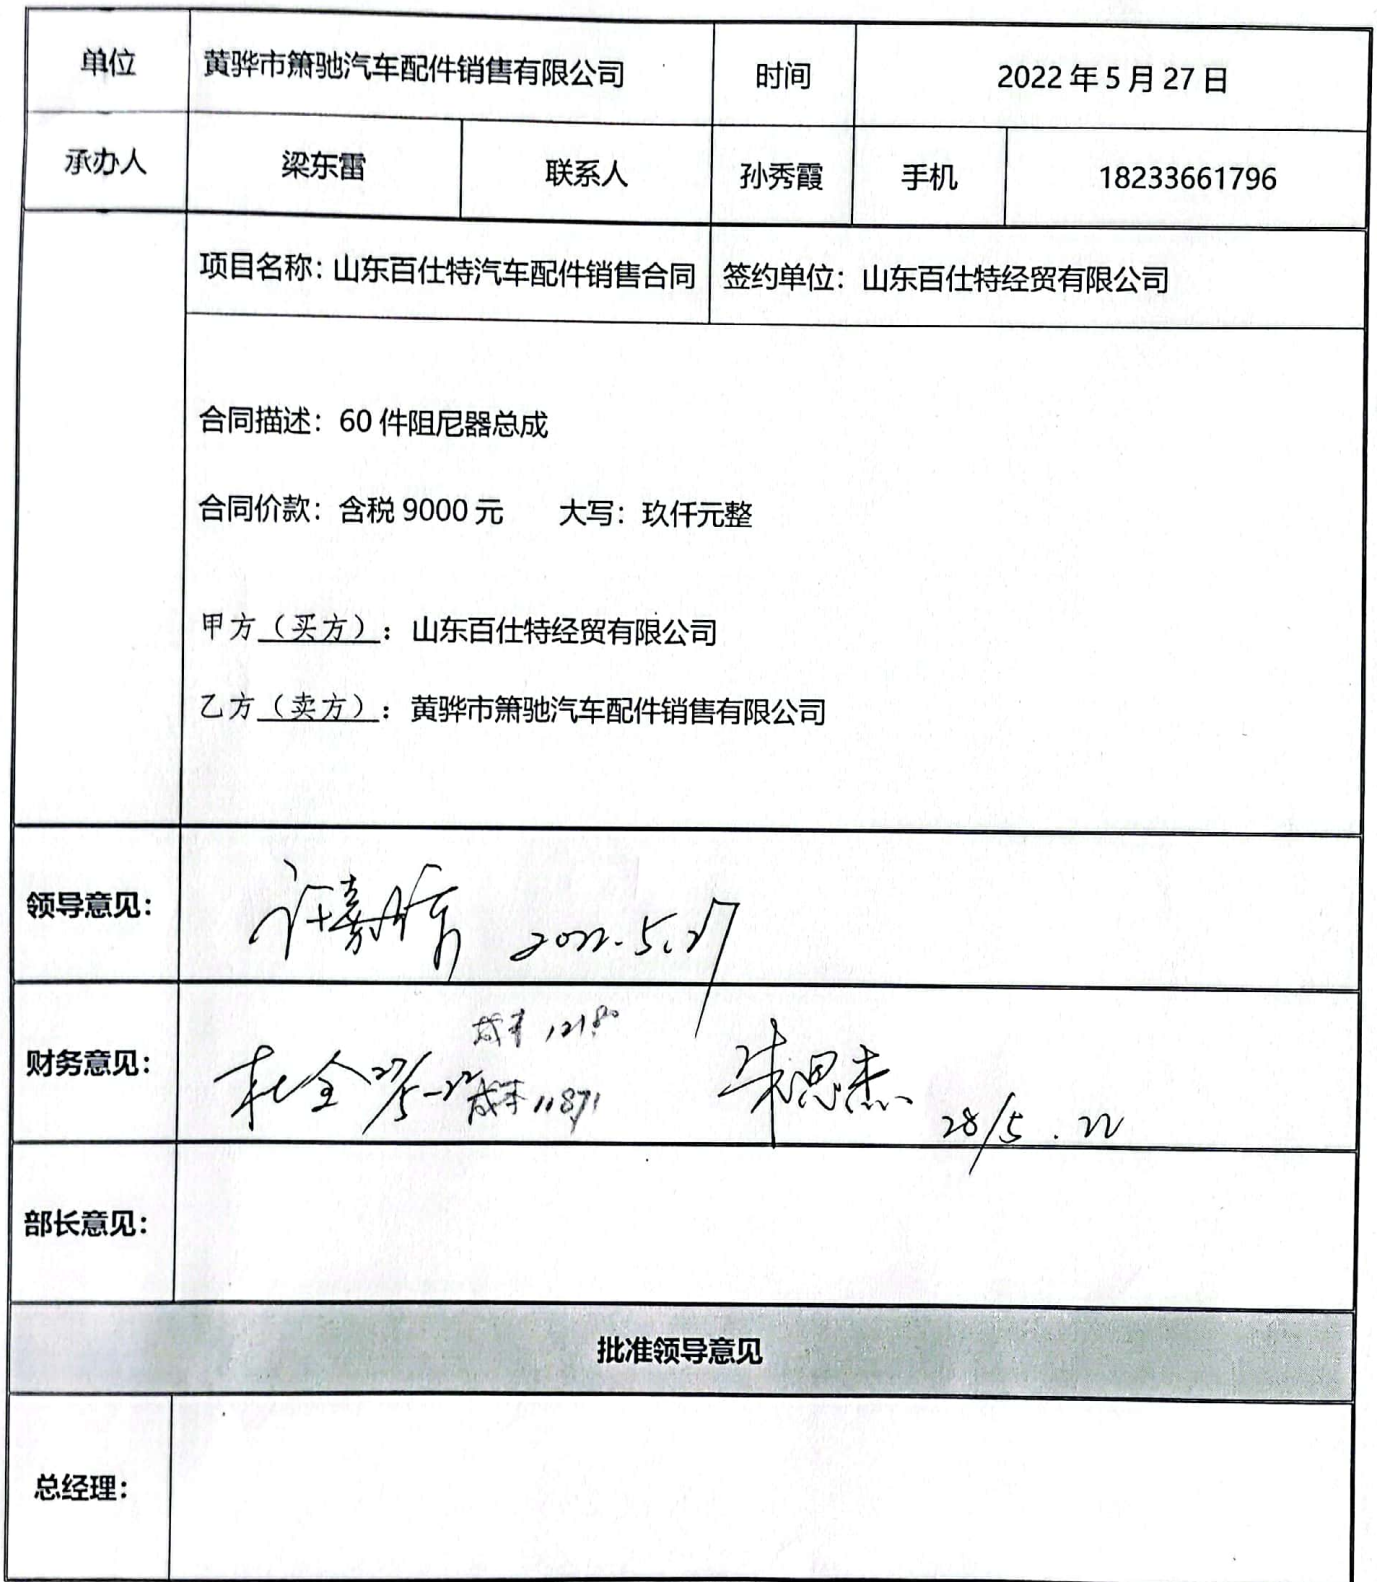 单位 黄骅市箫驰汽车配件销售有限公司 时间 2022年5月27日
承办人 梁东雷 联系人 孙秀霞 手机 18233661796
项目名称：山东百仕特汽车配件销售合同 签约单位：山东百仕特经贸有限公司
合同描述：60件阻尼器总成
合同价款：含税9000元 大写：玖仟元整
甲方（买方）：山东百仕特经贸有限公司
乙方（卖方）：黄骅市箫驰汽车配件销售有限公司
领导意见： 2022.5.27
成本
财务意见： 杜全 27/5-22 成本11871 朱思杰 28/5.22
部长意见：
批准领导意见
总经理：